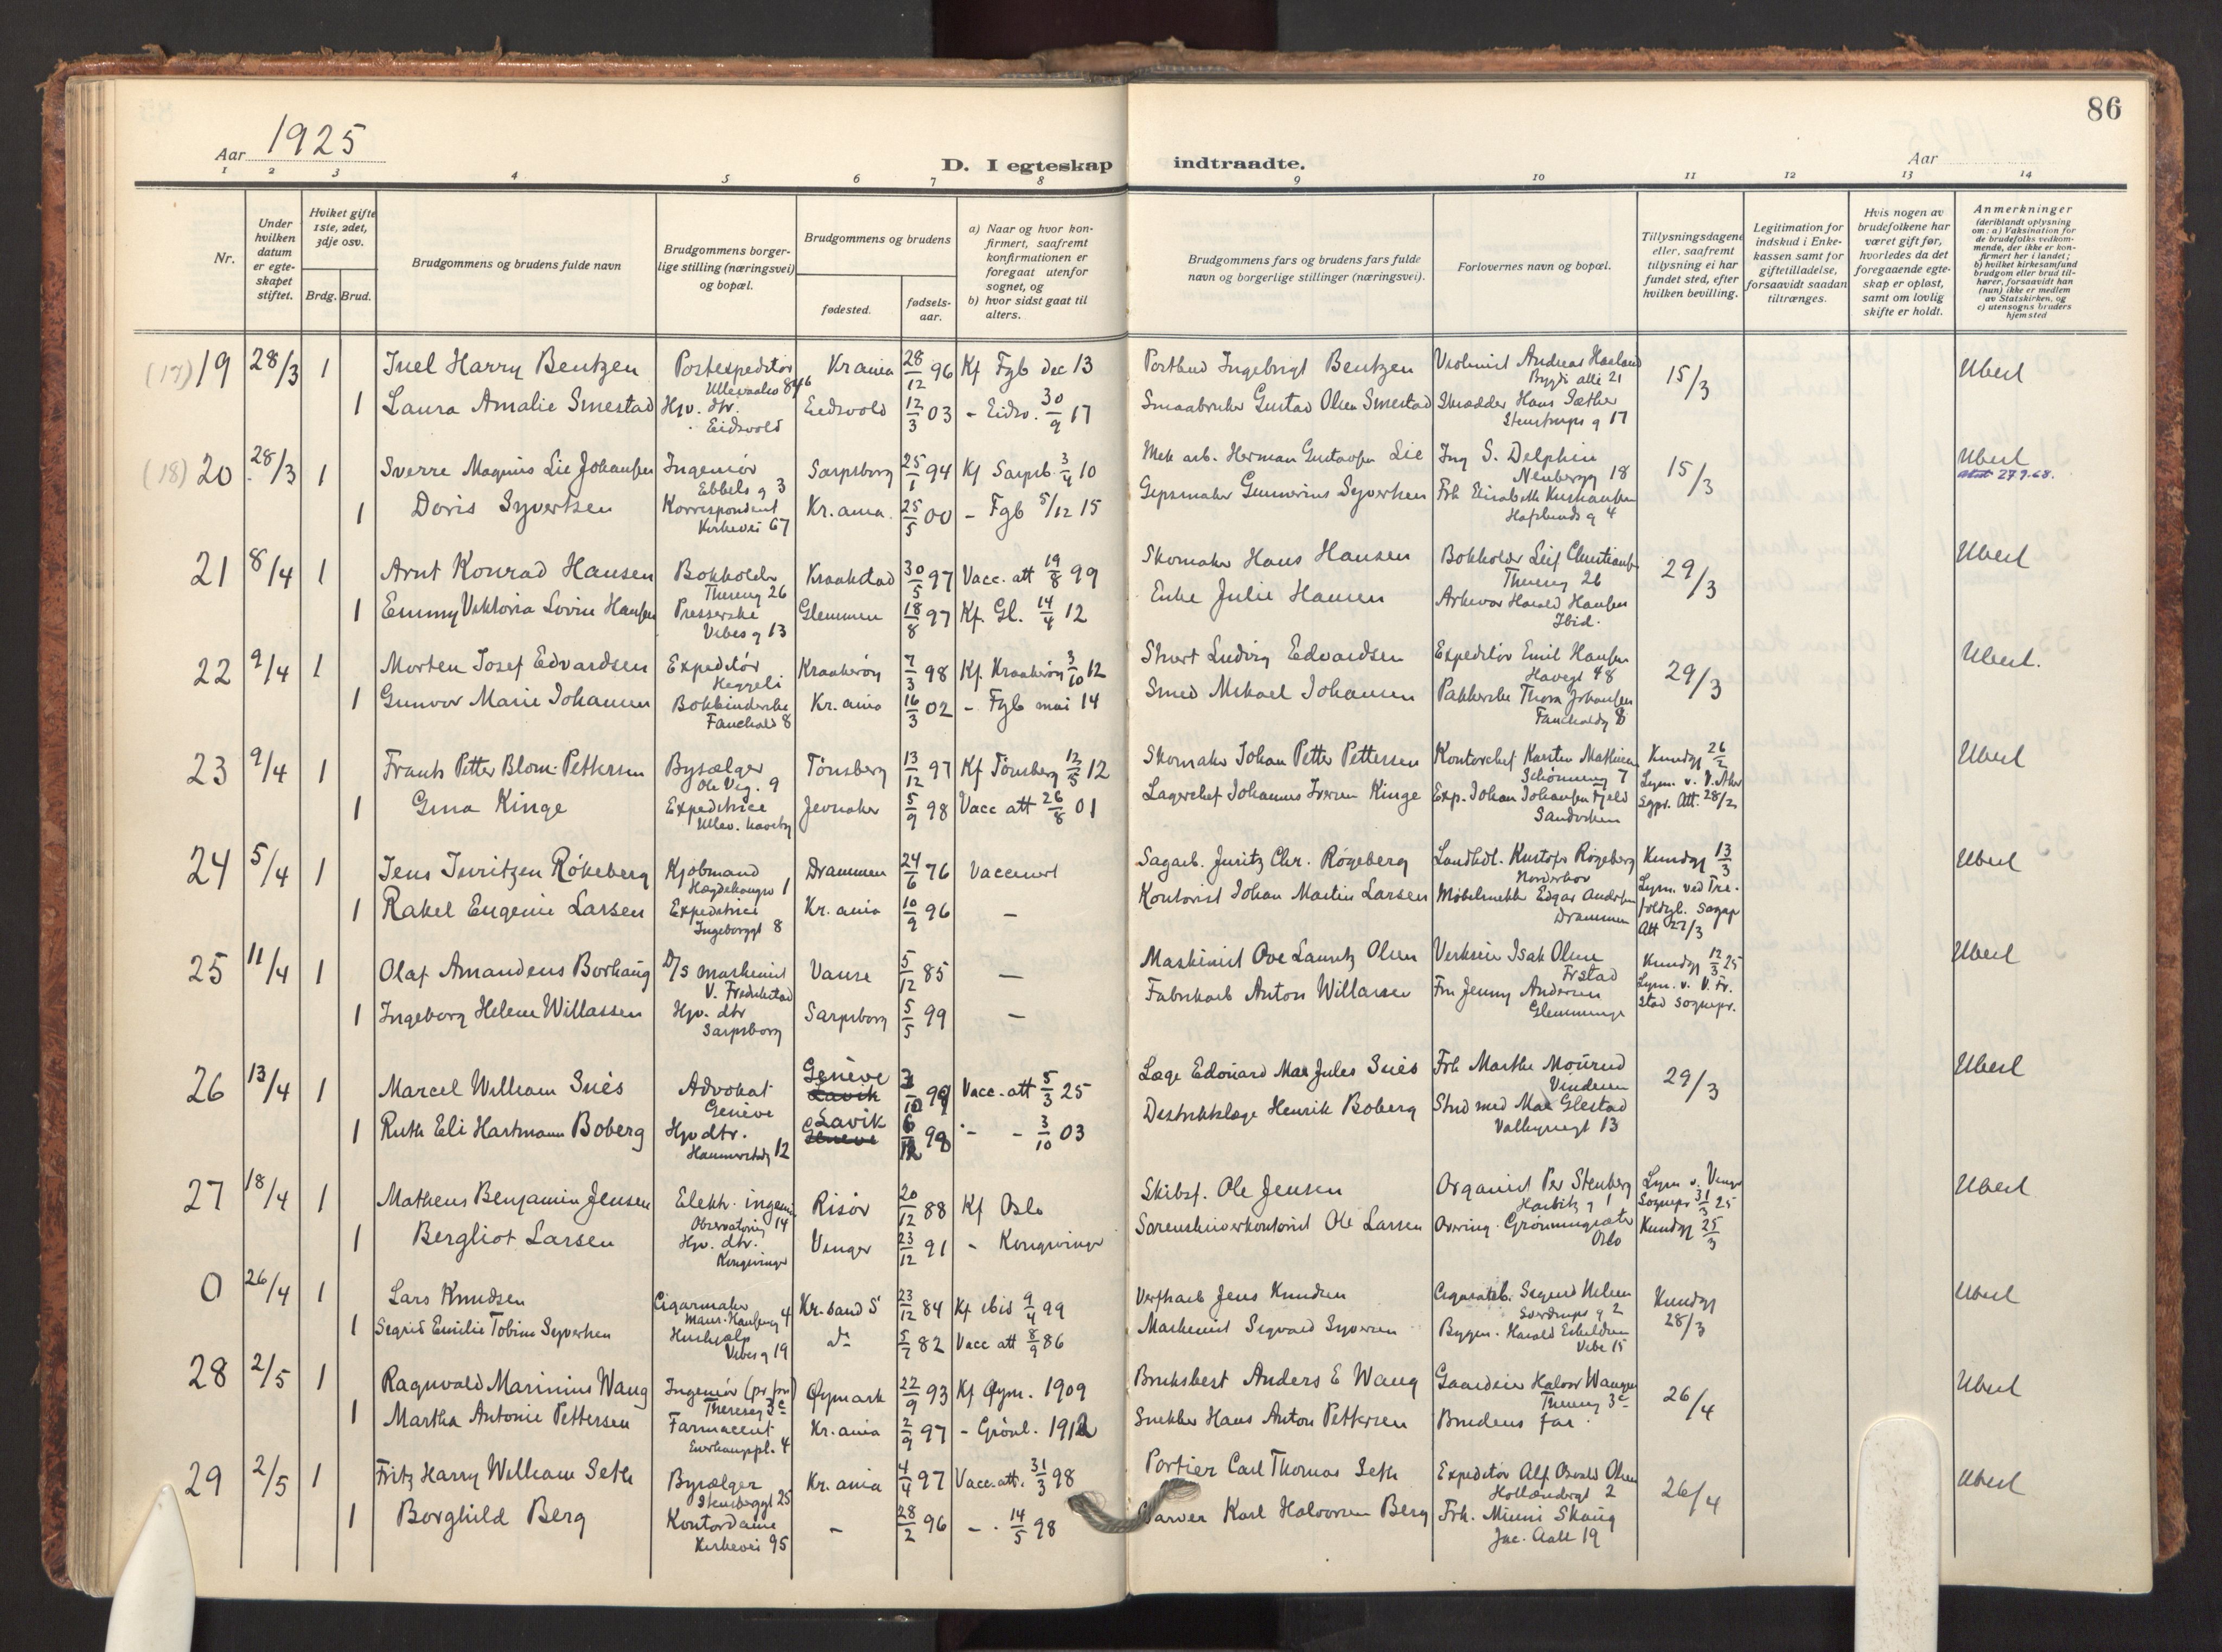 86
Aar 1925
D. I egteskap indtraadte.
Aar
1 2 3 4 5 6 7 8 9 10 11 12 13 14
Nr.
Under hvilken datum er egteskapet stiftet.
Hvilket gifte 1ste, 2det, 3dje osv.
Brdg. Brud.
Brudgommens og brudens fulde navn
Brudgommens borgerlige stilling (næringsvei) og bopæl.
Brudgommens og brudens
fødested.
fødselsaar.
a) Naar og hvor konfirmert, saafremt konfirmationen er foregaat utenfor sognet, og
b) hvor sidst gaat til alters.
Brudgommens fars og brudens fars fulde navn og borgerlige stillinger (næringsvei).
Forlovernes navn og bopæl.
Tillysningsdagene eller, saafremt tillysning ei har fundet sted, efter hvilken bevilling.
Legitimation for indskud i Enkekassen samt for giftetilladelse, forsaavidt saadan tiltrænges.
Hvis nogen av brudefolkene har været gift før, hvorledes da det foregaaende egteskap er opløst, samt om lovlig skifte er holdt.
Anmerkninger
(deriblandt oplysning om: a) Vaksination for de brudefolks vedkommende, der ikke er konfirmert her i landet;
b) hvilket kirkesamfund brudgom eller brud tilhører, forsaavidt han (hun) ikke er medlem av Statskirken, og
c) utensogns bruders hjemsted
(17) 19 28/3 1 Juel Harry Bentzen Postexpeditør Kr.ania 28/12 96 Kf Fgb dec 13 Postbud Ingebrigt Bentzen Violinist Andreas Haaland 15/3 Ubert
Bygdø allé 21
1 Laura Amalie Smestad Hjv. dtr. Eidsvold Eidsvold 12/3 03 - Eidsv. 30/9 17 Smaabruker Gustav Olsen Smestad Skrædder Hans Sæther
Stenstrups g 17
(18) 20 28/3 1 Sverre Magnus Lie Johansen Ingeniør Ebbels g 3 Sarpsborg 25/1 94 Kf Sarpsb. 3/4 10 Mek arb. Herman Gustavsen Lie Ing S. Delphin 15/3 Ubert
Neuberg 18 27.9.68.
1 Doris Syvertsen Korrespondent Kirkevei 67 Kr.ania. 25/5 00 - Fgb 5/12 15 Gipsmaker Gunnerius Syvertsen Frk Elisabeth
Hafslunds g 4
21 8/4 1 Arnt Konrad Hansen Bokholder Thereseg 26 Kraakstad 30/5 97 Vacc. att 19/8 99 Skomaker Hans Hansen Bokholder Leif Christiansen 29/3 Ubert
Thereseg 26
1 Emmy Viktoria Lovise Hansen Presserske Vibes g 13 Glemmen 18/8 97 Kf. Gl. 14/4 12 Enke Julie Hansen Harald Hansen
Ibid.
22 9/4 1 Morten Josef Edvardsen Expeditør Heggeli Kraakerøy 7/3 98 Kf Kraakerøy 3/10 12 Ludvig Edvardsen Expeditør Emil Hansen 29/3 Ubert.
48
1 Gunvor Marie Johansen Bokbinderske Fauchalds 8 Kr.ania 16/3 02 - Fgb mai 14 Smed Mikael Johansen Pakkerske Thora Johansen
Fauchaldsg 8
23 9/4 1 Frants Petter Blom-Pettersen Bysælger Ole Vig. 9 Tønsberg 13/12 97 Kf Tønsberg 12/5 12 Skomaker Johan Petter Pettersen Kontorchef Karsten Mathisen Kundgj 26/2 Ubert
Schønning 7 Lysn. v. V. Aker
1 Gina Kinge Expeditrice Ullev. haveby Jevnaker 5/9 98 Vacc att 26/8 01 Lagerchef Johannes Iversen Kinge Exp. Johan Johansen Fjeld Sgpr. Att. 28/3
Sandviken
24 5/4 1 Jens Juritzen Røkeberg Kjøbmand Hægdehaugsv 1 Drammen 24/6 76 Vaccinert Sagarb. Juritz Chr. Røgeberg Landhdl. Kristofer Røgeberg Kundgj 13/3 Ubert
Norderhov Lysn. ved Tre-
1 Rakel Eugenie Larsen Expeditrice Ingeborggt 8 Kr.ania 10/9 96 — Kontorist Johan Martin Larsen Møbelsnekker Edgar Andersen foldigh. sogpr
Drammen Att 27/3
25 11/4 1 Olaf Amandeus Borhaug D/S maskinist V. Fredrikstad Vanse 5/12 85 — Maskinist Ove Lauritz Olsen Verkseier Isak Olsen Kundgj 12/3 25 Ubert
Frstad Lysn. v. V. Fr.
1 Ingeborg Helene Willassen Hjv. dtr Sarpsborg Sarpsborg 5/5 99 — Fabrikarb Anton Willassen Fru Jenny Andersen stad sognepr.
Glemminge
26 13/4 1 Marcel William Suès Advokat Genève Genève Lavik 3/10 99 Vacc. att 5/3 25 Læge Edouard Max Jules Suès Frk Marthe Mourud 29/3 Ubert
Vinderen
1 Ruth Eli Hartmann Boberg Hjv dtr. Hammerstadg 12 Lavik Genève 6/12 98 - - 3/10 03 Distriktslæge Henrik Boberg Stud med Max Glestad
Valkyriegt 13
27 18/4 1 Matheus Benjamin Jensen Elektr. ingeniør Observatoriég 14 Risør 20/12 88 Kf Oslo Skibsf. Ole Jensen Organist Per Stenberg Lysn v. Vinger Ubert
Harbitz g 1 Sognepr 31/3 25
1 Bergliot Larsen Hjv. dtr. Kongsvinger Vinger 23/12 91 - Kongsvinger Sorenskriverkontorist Ole Larsen Kundgj 25/3
Oslo
0 26/4 1 Lars Knudsen Cigarmaker Maur. Hansensg 4 Kr.sand S 23/12 84 Kf ibid 9/4 99 Verftsarb Jens Knudsen Cigararb. Sigurd Nilsen Kundgj Ubert
Sverdrups g 2 28/3
1 Sigrid Emilie Tobine Syvertsen Hushjælp Vibes g 19 do 5/7 82 Vacc att 8/9 86 Maskinist Sigvald Syversen Bygm. Harald Eskildsen
Vibe 15
28 2/5 1 Ragnvald Marinius Waug Ingeniør Thereseg 3c Øymark 22/9 93 Kf Øym. 1909 Bruksbest Anders E Waug Gaardeier Halvor Waug 26/4 Ubert
Thereseg 3c
1 Martha Antonie Pettersen Farmaceut 4 Kr.ania 2/9 97 - Grønl. 1912 Snekker Hans Anton Pettersen Brudens far.
29 2/5 1 Fritz Harry William Seth Bysælger Stensberggt 25 Kr.ania 4/4 97 Vacc. att. 31/3 98 Portier Carl Thomas Seth Expeditør Alf Osvald Olsen 26/4 Ubert
Hollændergt 2
1 Borghild Berg Kontordame Kirkevei 95 - 28/2 96 - . 14/5 98 Garver Karl Halvorsen Berg Frk. Mimi Skaug
Jac. Aall 19